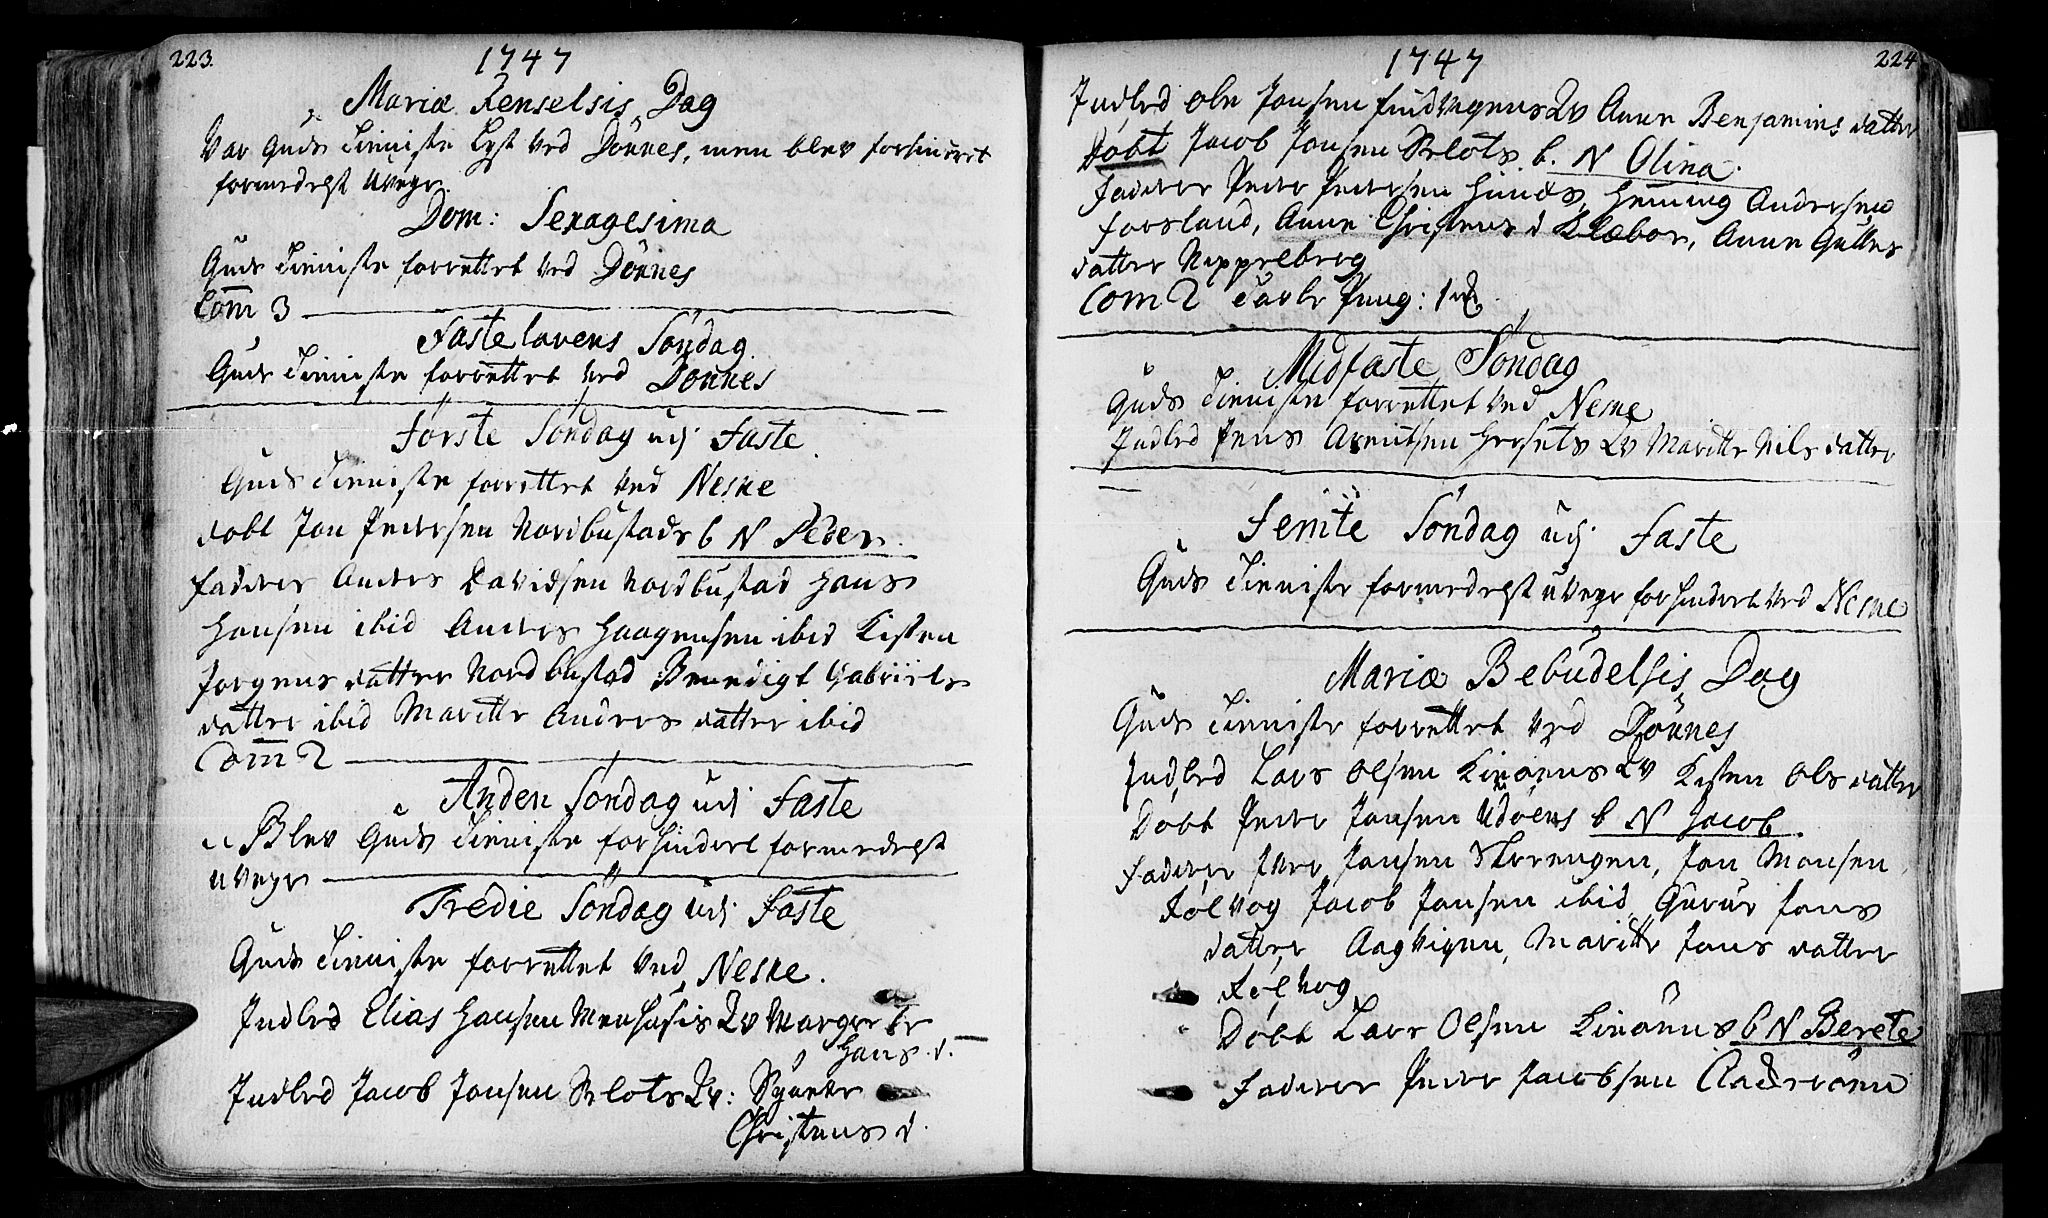 223.
1747
Mariæ Renselsis Dag
Var Guds Tieniste lyst ved Dönnes, men blev forhindret
formedelst Uveyr.
Dom: Sexagesima
Guds Tieniste forrettet ved Dönnes
Com̄ 3
Fastelavens Söndag
Guds Tieniste forrettet ved Dönnes
Förste Söndag udj Faste.
Guds Tieniste forrettet ved Nesne
döbt Jon Pedersen Nordbustads b N Peder.
faderer Anders Davidsen Nordbustad Hans
Hansen ibid Anders Haagensen ibid Kisten
Jorgens datter Nordbustad Benedigt Gabriels
datter ibid Maritte Anders datter ibid
Com̄ 2
Anden Söndag udj Faste
Blev Guds Tieniste forhindret formedelst
uveyr
Tredie Söndag udj Faste
Guds Tieniste forrettet ved Nesne.
Indled Elias Hansen Qv Margrete
Hans d.
Indled Jacob Jonsen Slots Qv:
Christens d.
224
1747
Indled Ole Jonsen Qv Anne Benjamins datter
Döbt Jacob Jonsen Slots b. N Olina.
Faderer Peder Pedersen Henning Andersen
Forsland, Anne Christens d Klæboe, Anne
datter
Com 2 Tavle Peng: 1
Midfaste Söndag
Guds Tieniste forrettet ved Nesne
Indled Jens Arentsen Hersets Qv Maritte Nils datter
Femte Söndag udj Faste
Guds Tieniste formedelst uveyr forhindret ved Nesne
Mariæ Bebudelsis Dag
Guds Tieniste forrettet ved Dönnes
Indled Lars Olsen Qv Kisten Ols datter
Döbt Peder Jonsen b N Jacob.
Faderer Iver Jonsen Jon Monsen
Sølvog Jacob Jonsen ibid, Guruv Jons
datter Aagvigen, Maritte Jons datter
Sølvog
Döbt Lars Olsen b N Berete
Faderer Peder Jacobsen